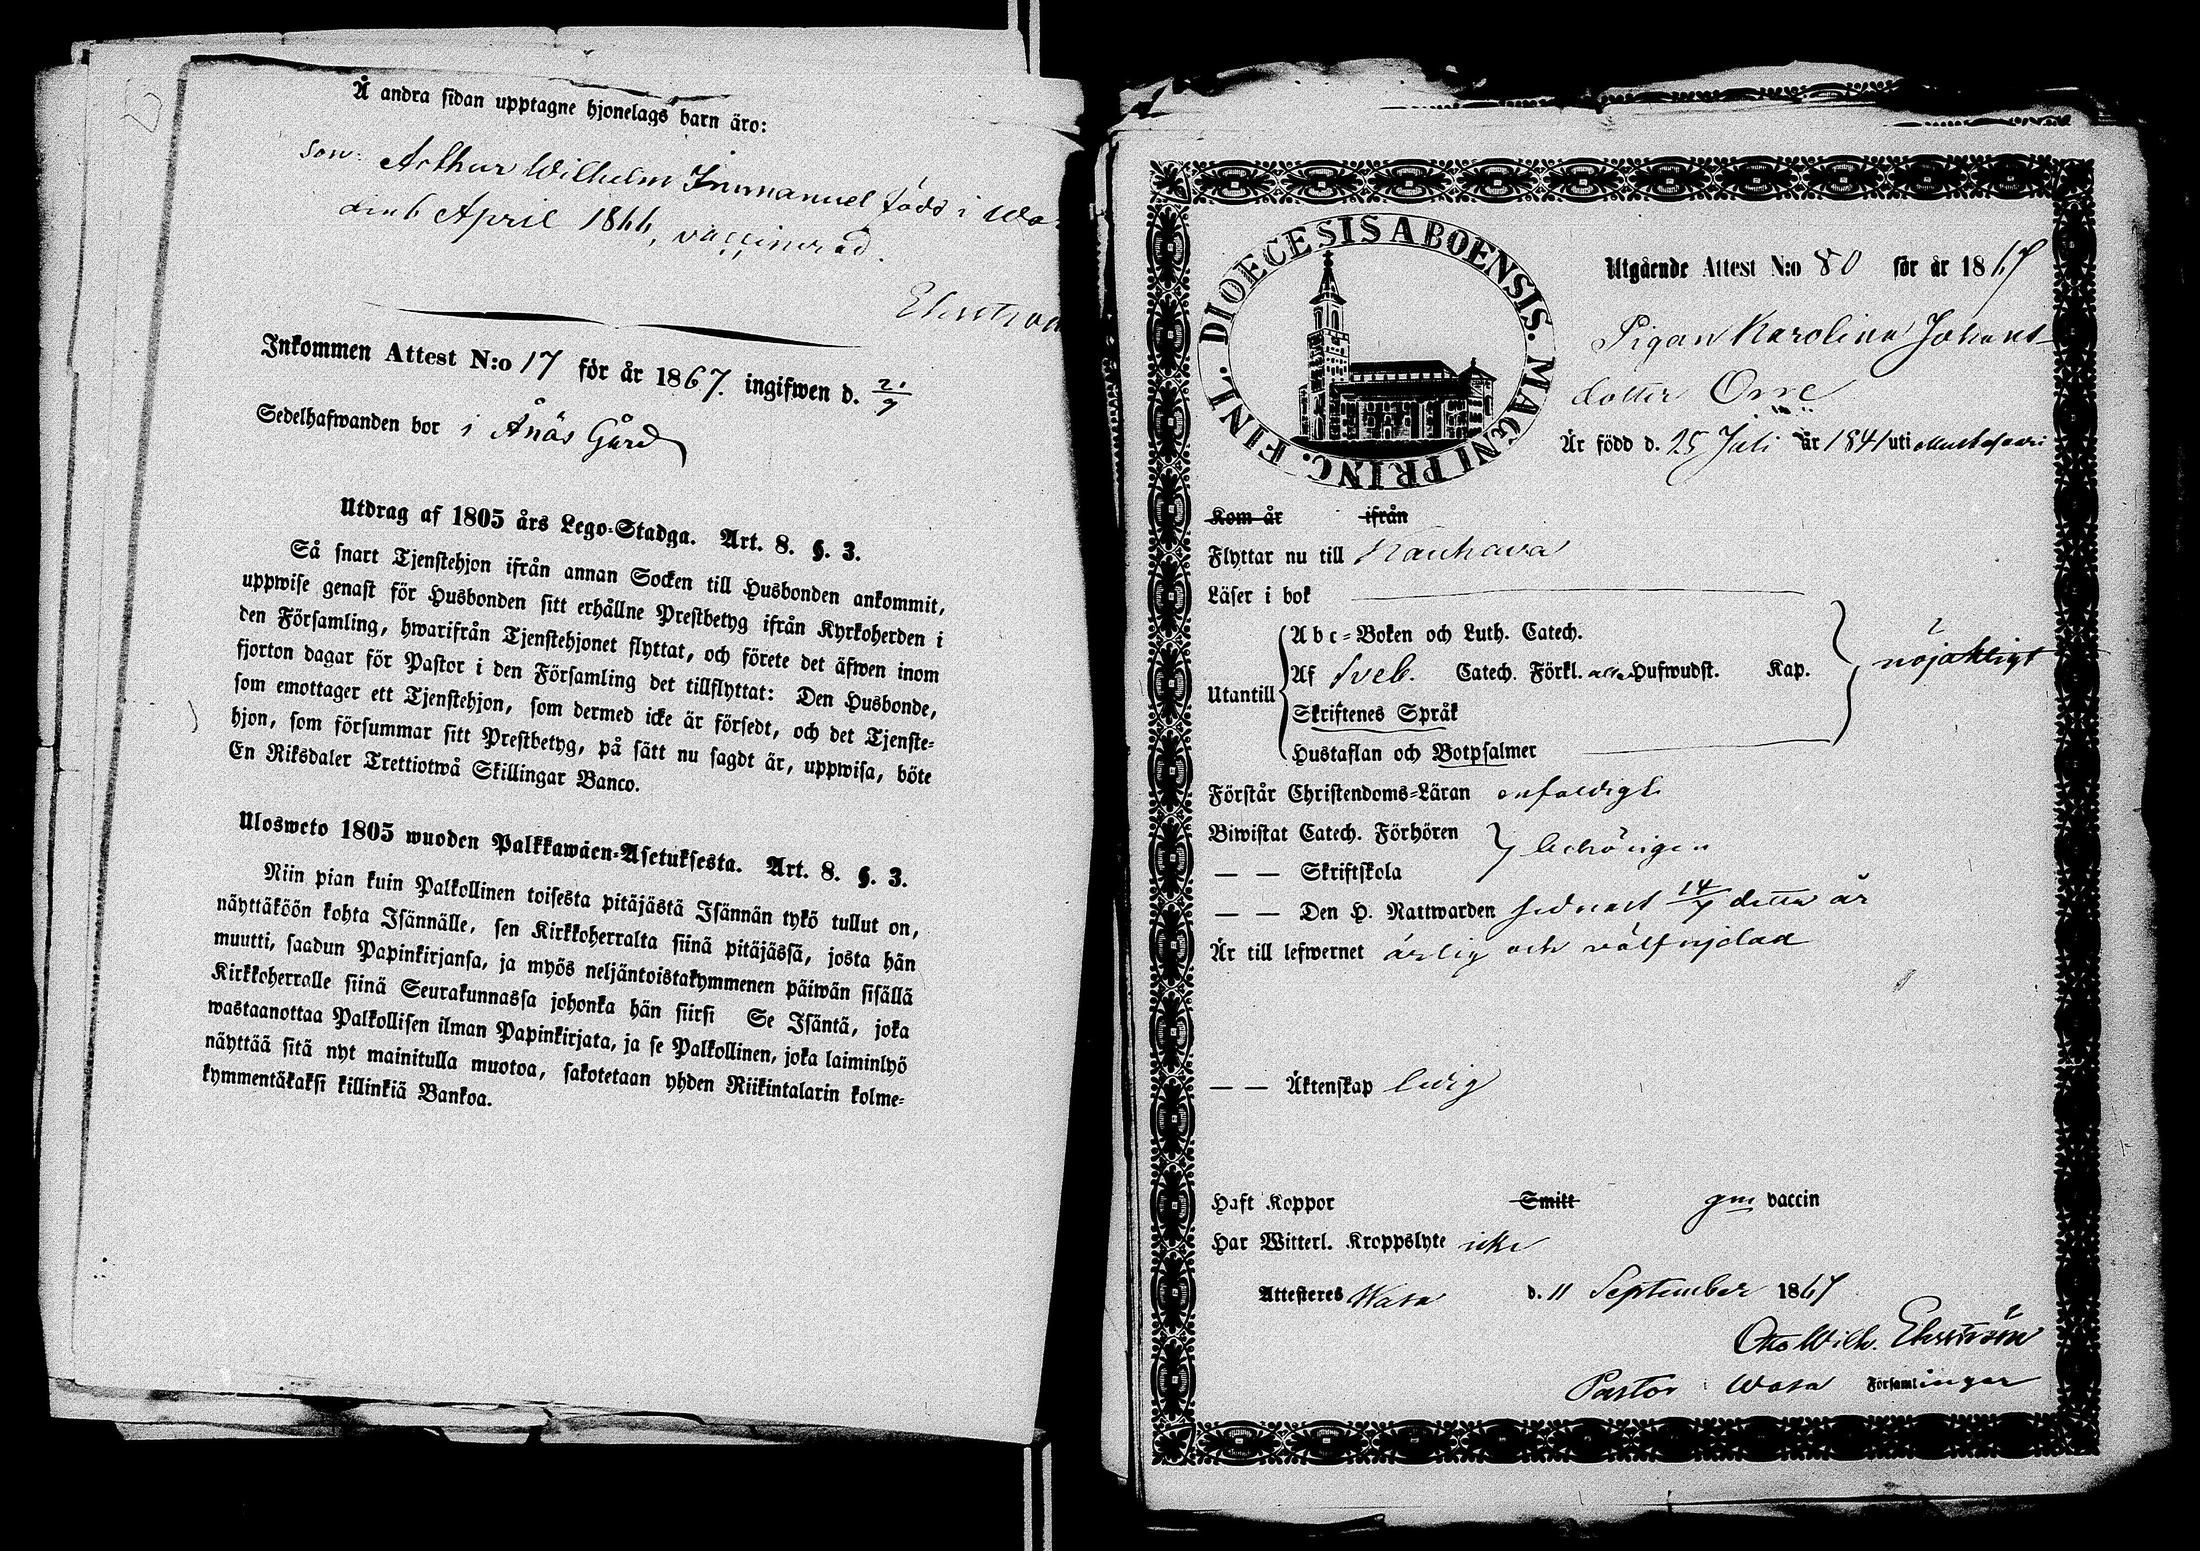 Å andra sidan upptagne hjonelags barn äro:
son: Arthur Wilhelm Immanuel född i Wa
den 6 April 1866, vaccinerad.
Inkommen Attest N:o 17 för år 1867. ingifwen d. 21/9
Sedelhafwanden bor i Ånäs Gård
Utdrag af 1805 års Lego-Stadga. Art. 8. §. 3.
Så snart Tjenstehjon ifrån annan Socken till Husbonden ankommit,
uppwise genast för Husbonden sitt erhållne Prestbetyg ifrån Kyrkoherden i
den Församling, hwarifrån Tjenstehjonet flyttat, och förete det äfwen inom
fjorton dagar för Pastor i den Församling det tillflyttat: Den Husbonde,
som emottager ett Tjenstehjon, som dermed icke är försedt, och det Tjenste-
hjon, som försummar sitt Prestbetyg, på sätt nu sagdt är, uppwisa, böte
En Riksdaler Trettiotwå Skillingar Banco.
Ulosweto 1805 wuoden Palkkawäen-Asetuksesta. Art. 8. §. 3.
Niin pian kuin Palkollinen toisesta pitäjästä Isännän tykö tullut on,
näyttäköön kohta Isännälle, sen Kirkkoherralta siinä pitäjässä, josta hän
muutti, saadun Papinkirjansa, ja myös neljäntoistakymmenen päiwän sisällä
Kirkkoherralle siinä Seurakunnassa johonka hän siirsi Se Isäntä, joka
wastaanottaa Palkollisen ilman Papinkirjata, ja se Palkollinen, joka laiminlyö
näyttää sitä nyt mainitulla muotoa, sakotetaan yhden Riikintalarin kolme-
kymmentäkaksi killinkiä Bankoa.
DIOECESIS ABOENSIS. MAGNI PRINC. FINL.
Utgående Attest N:o 80 för år 1867
Pigan Karolina Johans-
dotter Orre
Är född d. 25 Juli år 1841 uti Mustasaari
Kom år ifrån
Flyttar nu till Kauhava
Läser i bok
Abc-Boken och Luth. Catech.
Utantill Af Sveb. Catech. Förkl. alla Hufwudst. Kap. nöjaktigt
Skriftenes Språk
Hustaflan och Botpsalmer
Förstår Christendoms-Läran enfaldigt
Biwistat Catech. Förhören behörigen
— — Skriftskola
— — Den H. Nattwarden sednast 14/7 detta år
Är till lefwernet ärlig och välfrejdad
— — Äktenskap ledig
Haft Koppor Smitt gm vaccin
Har Witterl. Kroppslyte icke
Attesteres Wasa d. 11 September 1867
Otto Wilh. Ehrström
Pastor i Wasa Församlingar